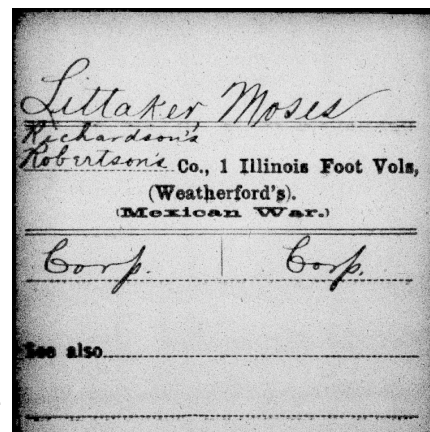 Littaker, Moses
Richardson's
Robertson's Co., 1 Illinois Foot Vols,
(Weatherford's).
(Mexican War.)
Corp. Corp.
See also